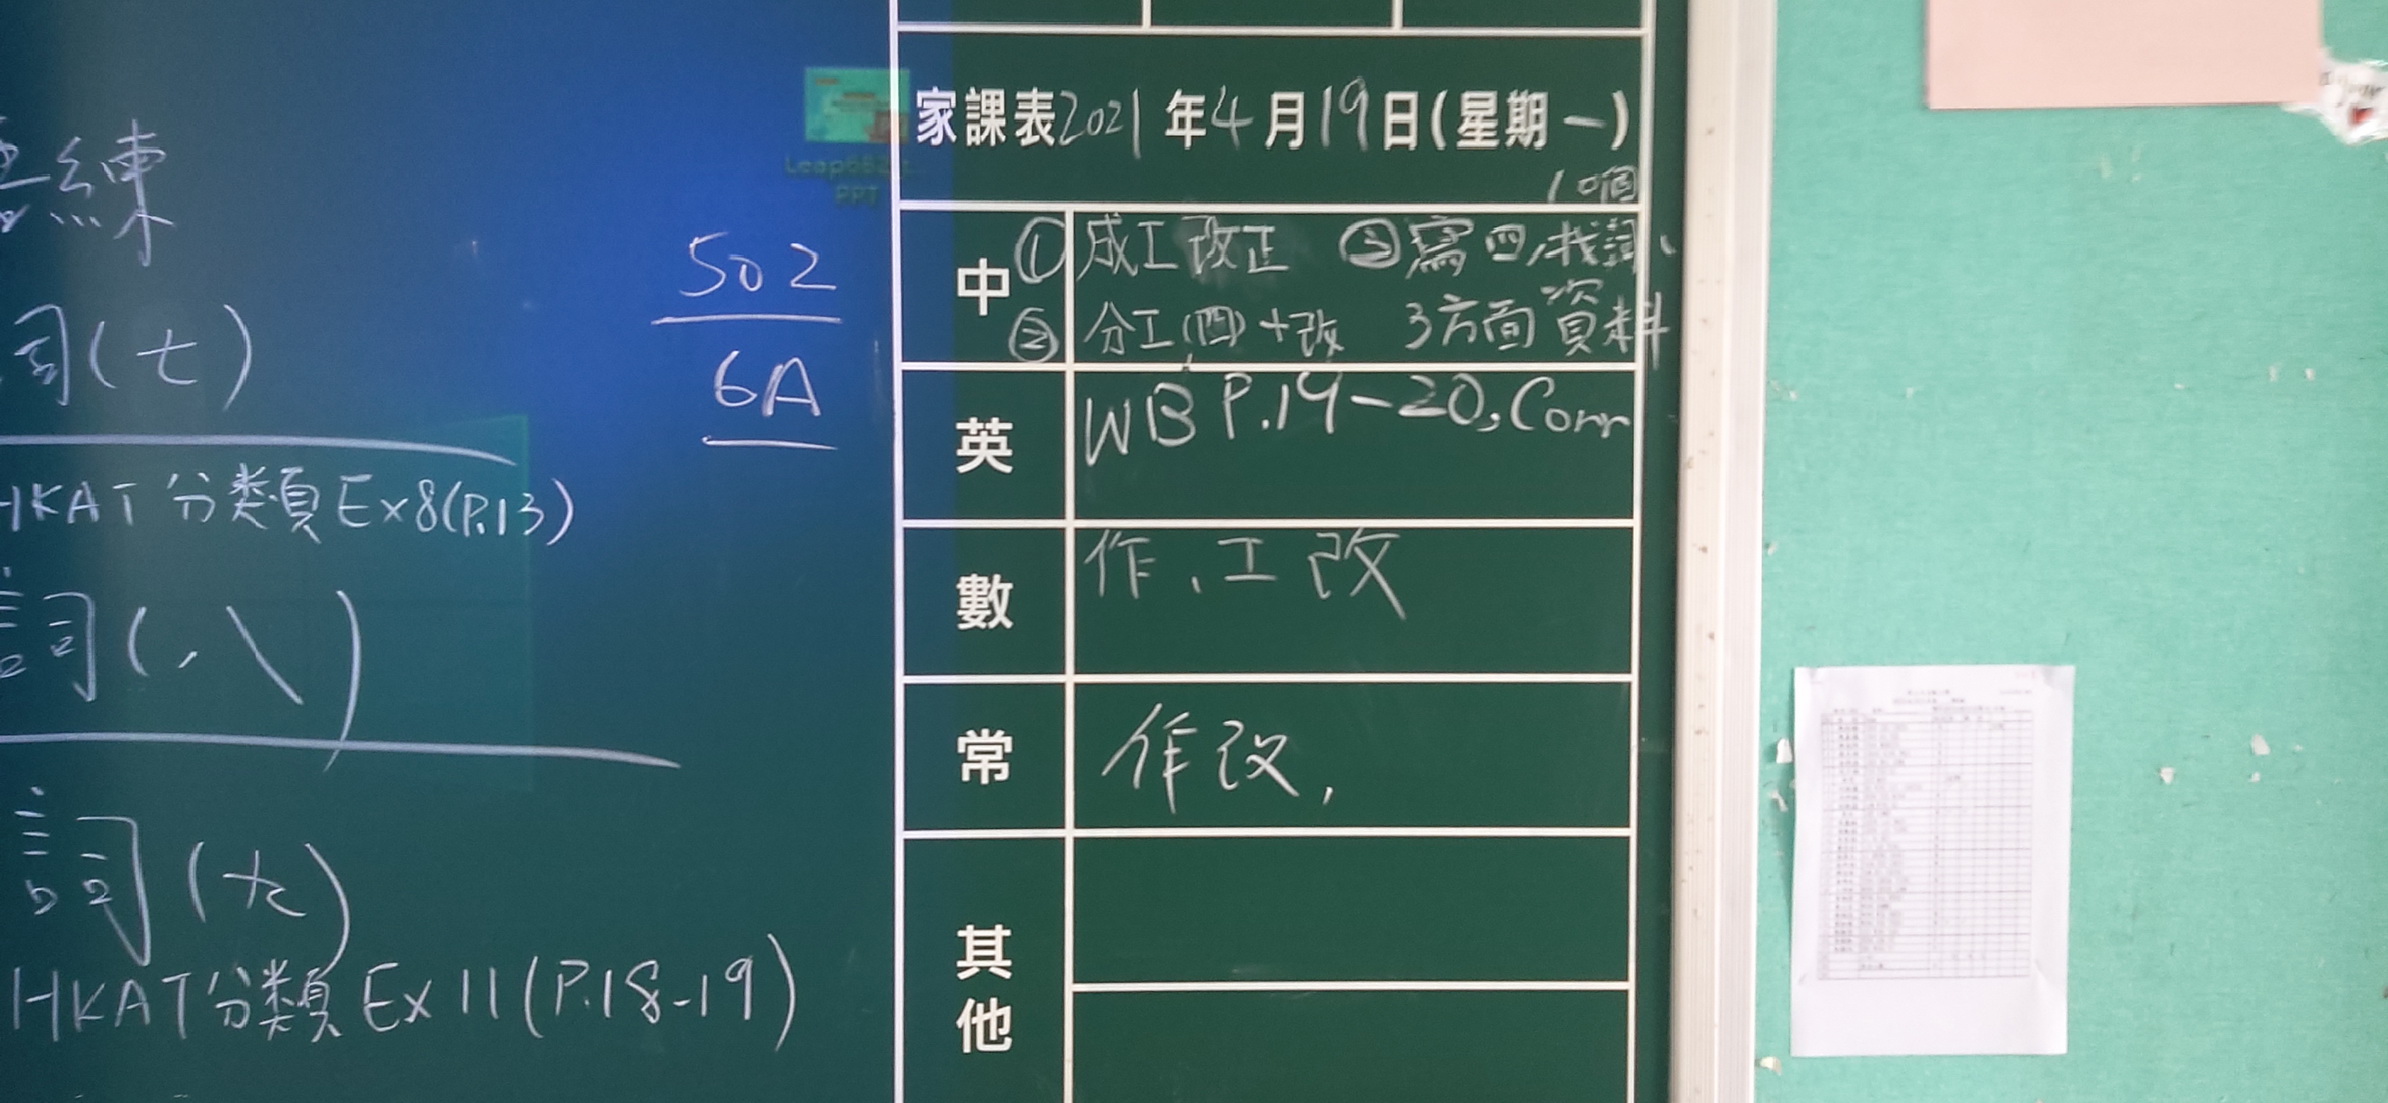 練
詞(七)
HKAT 分類頁 Ex8(P.13)
詞(八)
詞(九)
HKAT 分類頁 Ex 11 (P.18-19)
502
6A
PPT
家課表2021年4月19日(星期一)
10個
中 ① 成工改正 ③寫四,找詞、
② 分工(四)+改 3方面資料
英 WB P.19-20, Corr
數 作、工改
常 作改,
其他